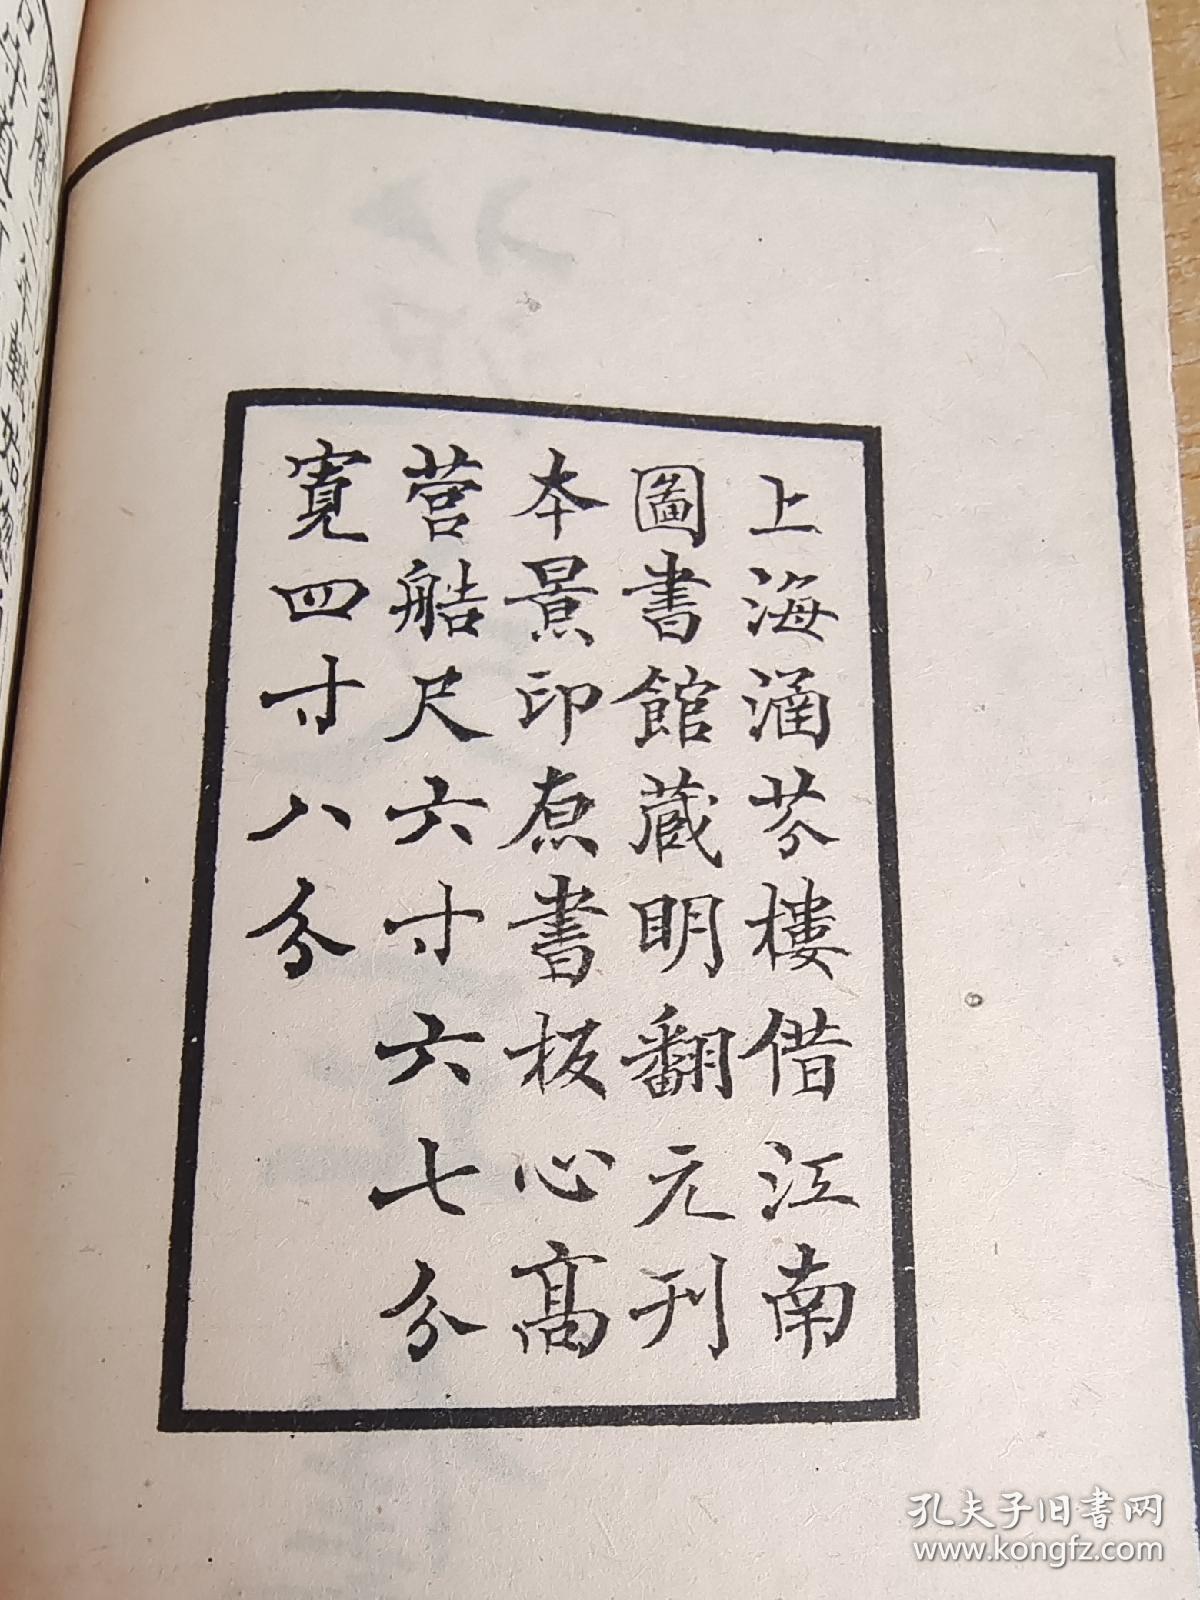 上海涵芬樓借江南
圖書館蔵明翻元刊
本景印原書板心高
營造尺六寸六七分
寬四寸八分
孔夫子旧書网
www.kongfz.com